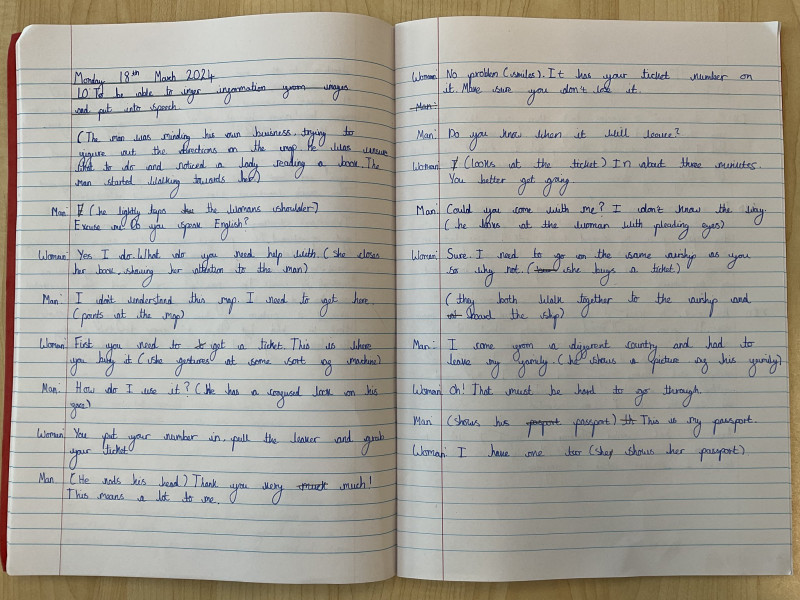 Monday 18th March 2024
LO To be able to infer information from images
and put into speech
(The man was minding his own business, trying to
figure out the directions on the map. He was unsure
what to do and noticed a lady reading a book. The
man started walking towards her)
Man: (he lightly taps the womans shoulder)
Excuse me Do you speak English?
Woman: Yes I do. What do you need help with. (she closes
her book, showing her attention to the man)
Man: I don't understand this map. I need to get here.
(points at the map)
Woman: First you need to to get a ticket. This is where
you buy it (she gestures at some sort of machine)
Man: How do I use it? (He has a confused look on his
face)
Woman: You put your number in, pull the leaver and grab
your ticket
Man (He nods his head) Thank you very much much!
This means a lot to me.
Woman: No problem (smiles). It has your ticket number on
it. Make sure you don't lose it.
Man:
Man: Do you know when it will leave?
Woman: (looks at the ticket) In about three minutes.
You better get going
Man: Could you come with me? I don't know the way
(he looks at the woman with pleading eyes)
Woman: Sure. I need to go on the same airship as you
so why not. (she buys a ticket)
(they both walk together to the airship and
board the ship)
Man: I come from a different country and had to
leave my family. (he shows a picture of his family)
Woman: Oh! That must be hard to go through.
Man (shows his passport) This is my passport.
Woman: I have one too (shep shows her passport)